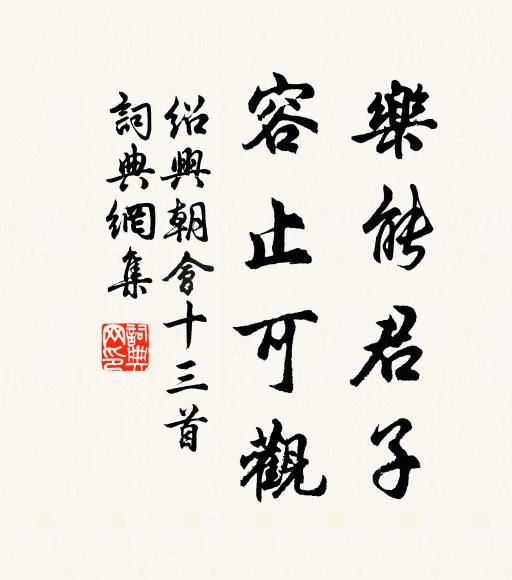 樂能君子
容止可觀
紹興朝會十三首
詞典網集
詞典网印